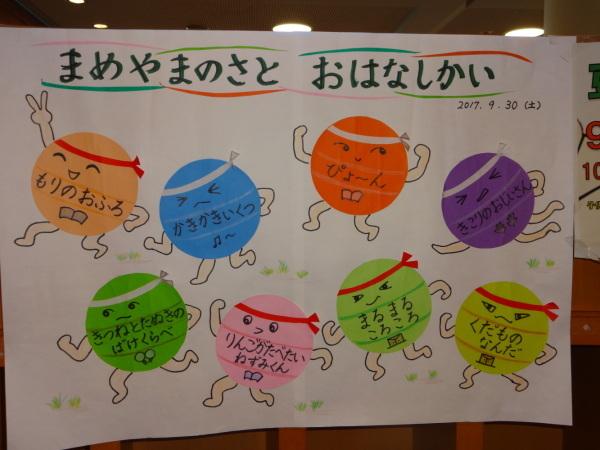 まめやまのさと おはなしかい
2017.9.30(土)
もりのおふろ
かきかきいくつ
ぴょーん
きこりのおじいさん
きつねとたぬきの
ばけくらべ
りんごがたべたい
ねずみくん
まるまる
ころころ
くだもの
なんだ